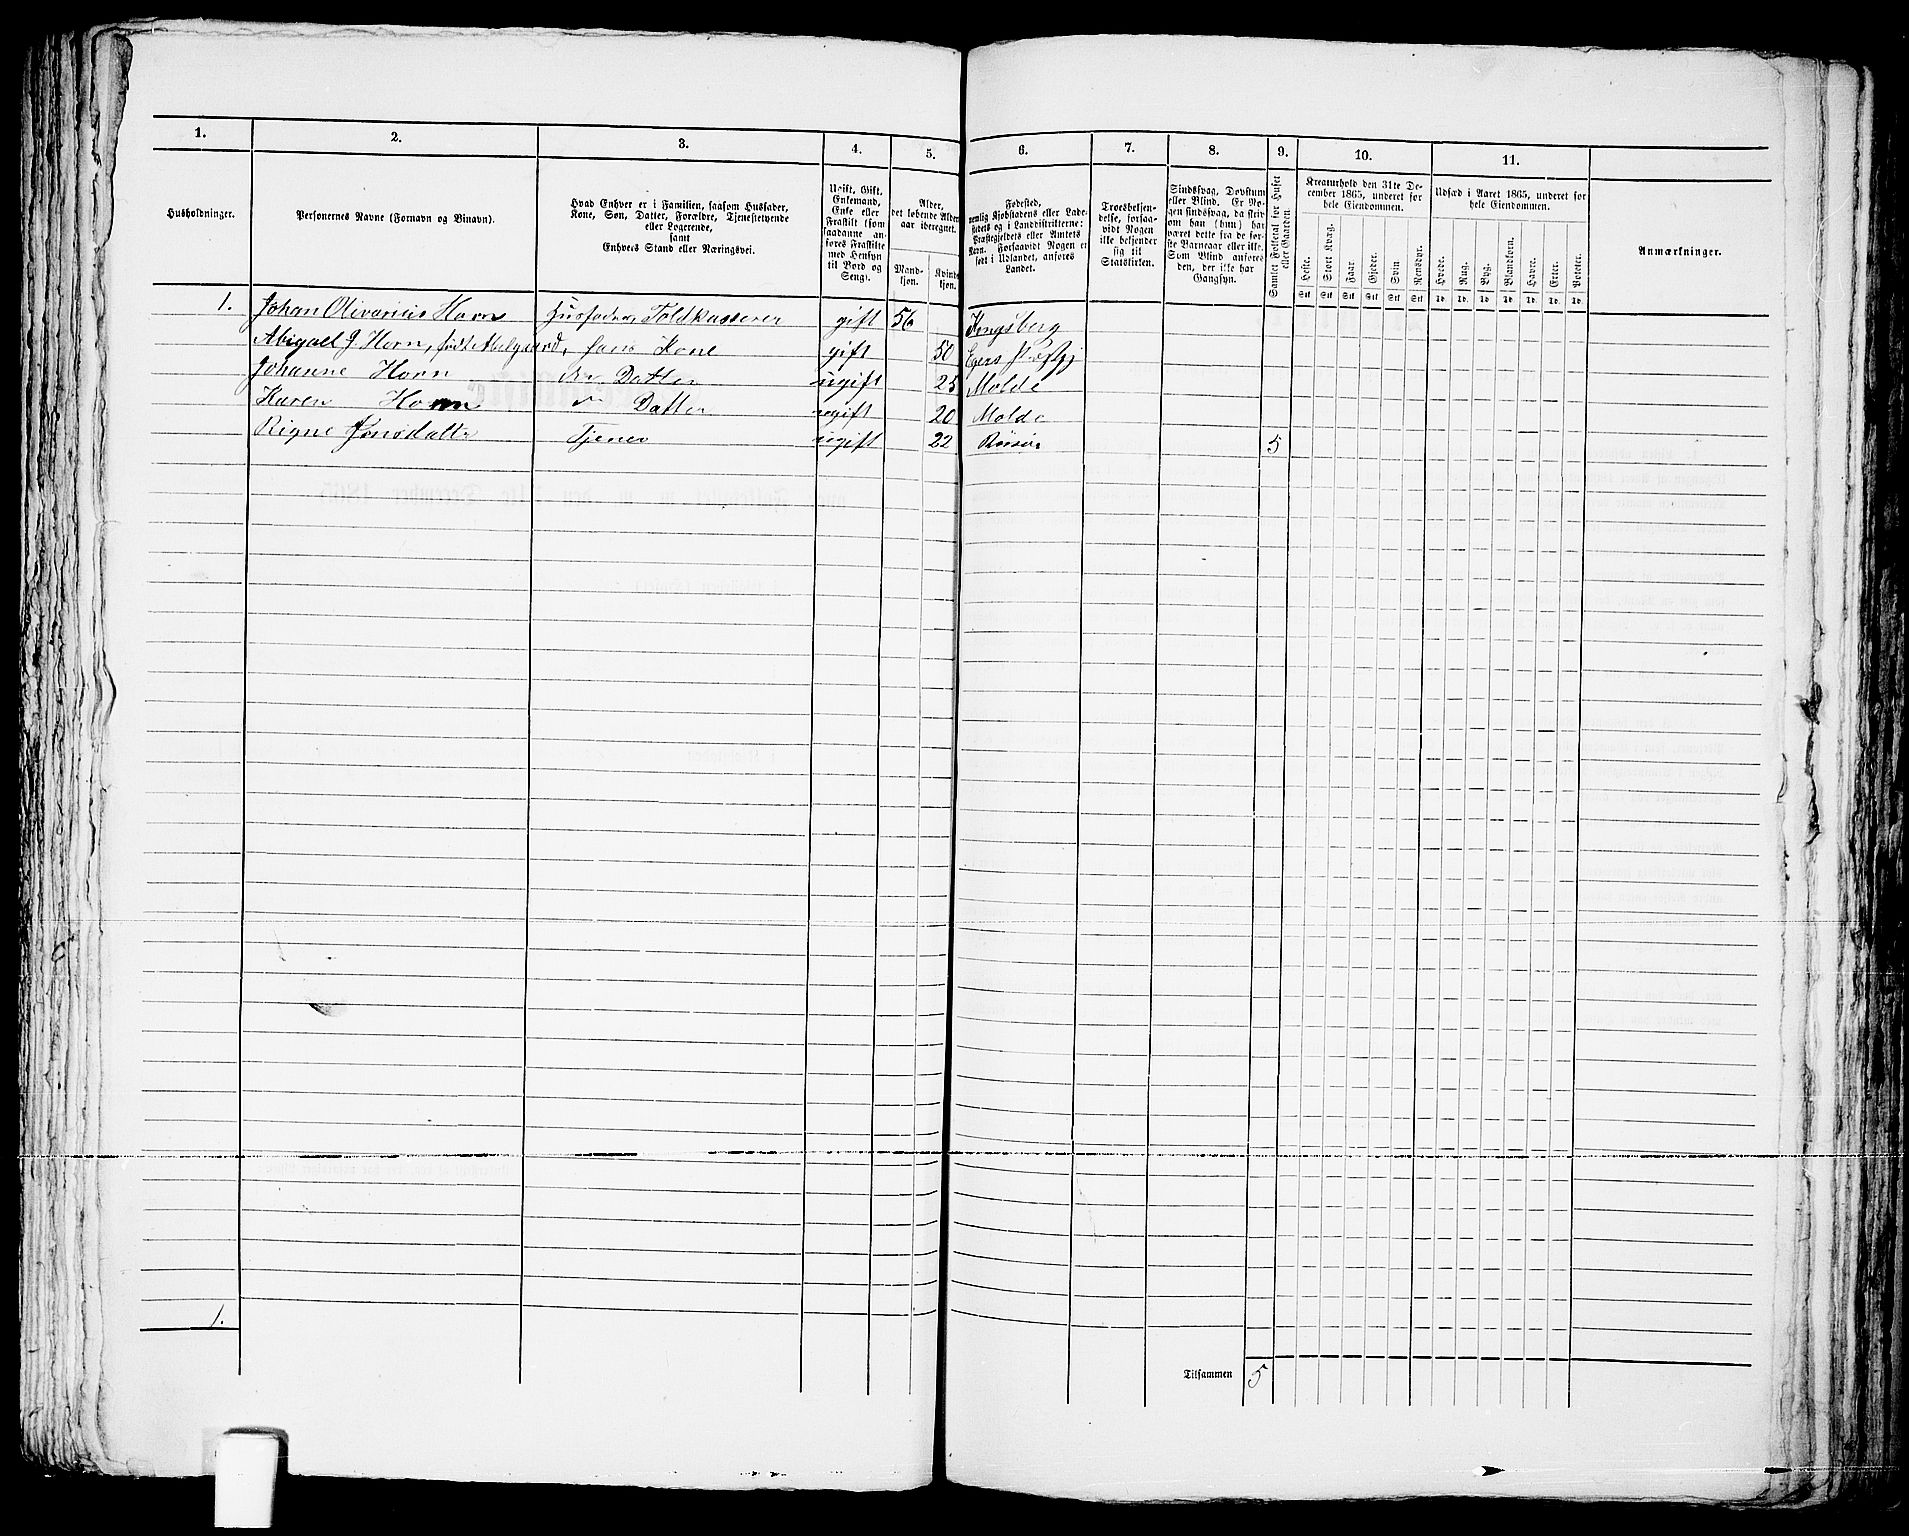 1. 2. 3. 4. 5. 6. 7. 8. 9. 10. 11.
Husholdninger.
Personernes Navne (Fornavn og Binavn).
Hvad Enhver er i Familien, saasom Husfader,
Kone, Søn, Datter, Forældre, Tjenestetyende
eller Logerende,
samt
Enhvers Stand eller Næringsvei.
Ugift, Gift,
Enkemand,
Enke eller
Fraskilt (som
saadanne an-
føres Fraskilte
med Hensyn
til Bord og
Seng).
Alder,
det løbende Alders-
aar iberegnet.
Mand-
kjøn.
Kvinde-
kjøn.
Fødested,
nemlig Kjøbstadens eller Lade-
stedets og i Landdistrikterne:
Præstegjeldets eller Amtets
Navn. Forsaavidt Nogen er
født i Udlandet, anføres
Landet.
Troesbekjen-
delse, forsaa-
vidt Nogen
ikke bekjender
sig til
Statskirken.
Sindssvag, Døvstum
eller Blind. Er No-
gen sindssvag, da skriv
om han (hun) har
været dette fra de før-
ste Barneaar eller ikke.
Som Blind anføres
den, der ikke har
Gangsyn.
Samlet Folketal for Huset
eller Gaarden.
Kreaturhold den 31te De-
cember 1865, underet for
hele Eiendommen.
Heste. Stort Kvæg. Faar. Gjeder. Svin. Rensdyr.
Stk. Stk. Stk. Stk. Stk. Stk.
Udsæd i Aaret 1865, underet for
hele Eiendommen.
Hvede. Rug. Byg. Blandkorn. Havre. Erter. Poteter.
Td. Td. Td. Td. Td. Td. Td.
Anmærkninger.
1. Johan Olivarius Horn Husfader, Toldkasserer gift 56 Kongsberg
Abigael J. Horn, født Abelgaard, hans Kone gift 50 Egers
Johanne Horn Datter ugift 25 Molde
Karen Horn Datter ugift 20 Molde
Jensdatter Tjener ugift 22 Risør 5
1.
Tilsammen 5